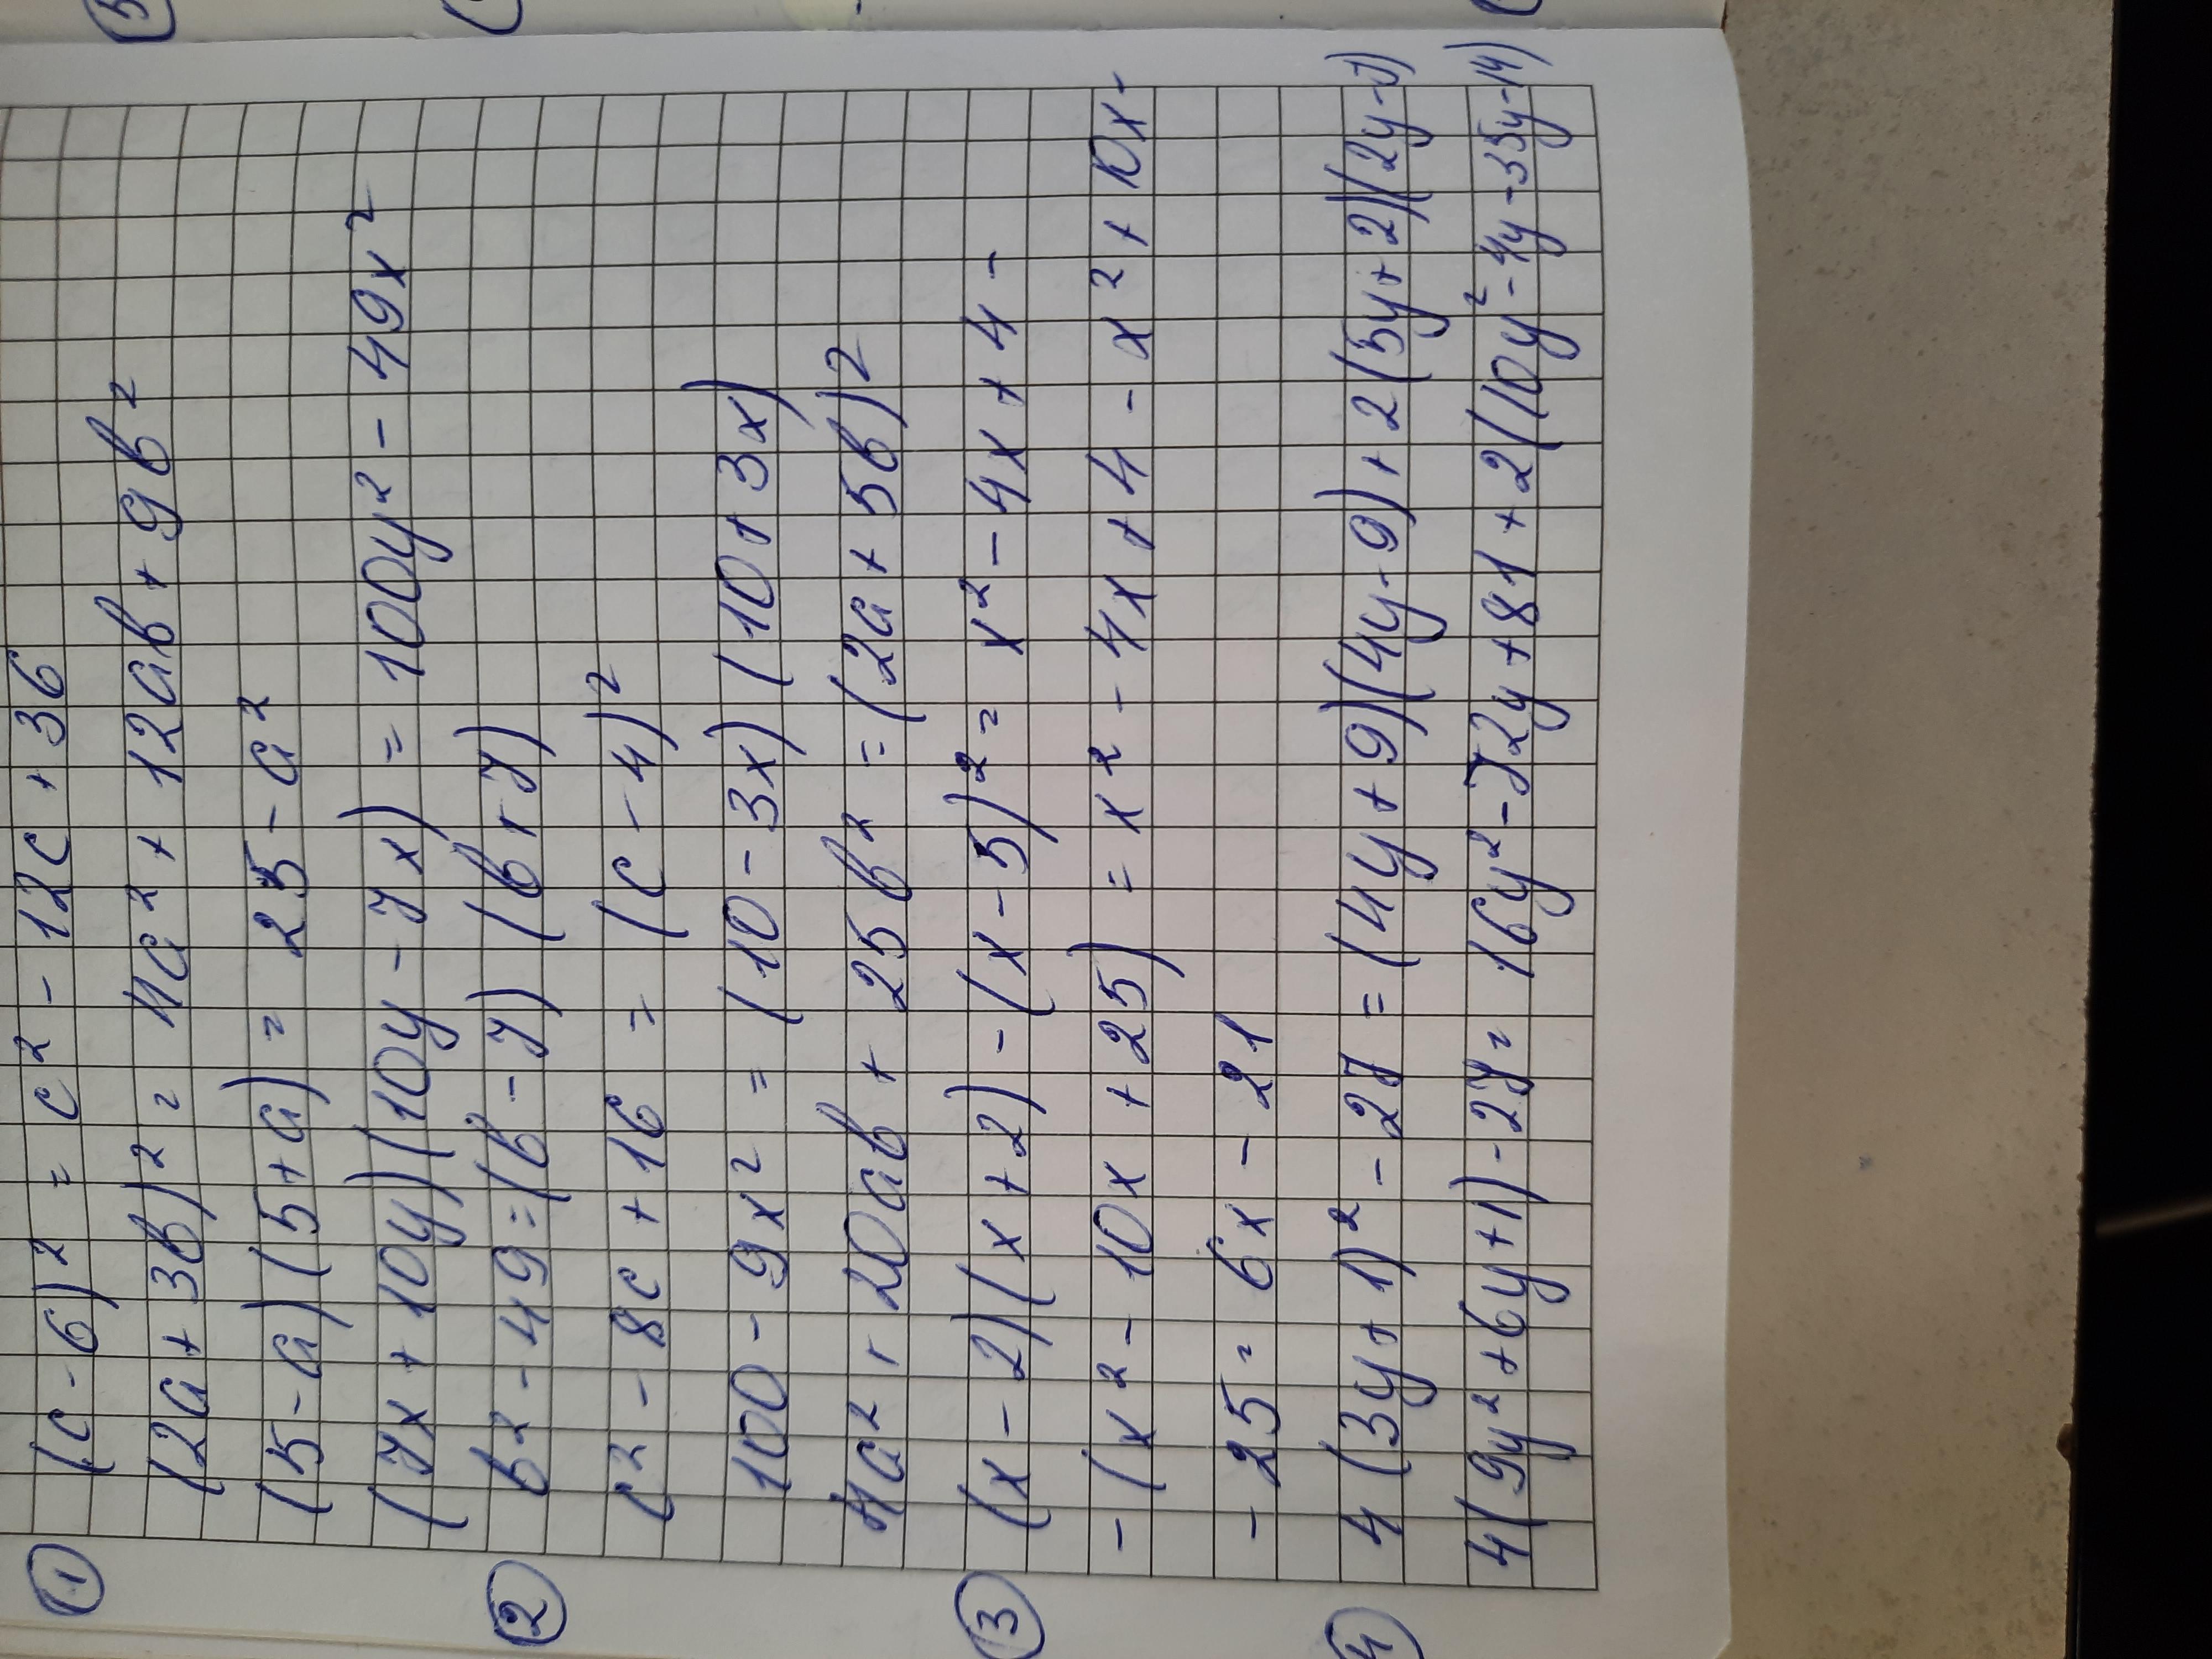 ① (c - 6)² = c² - 12c + 36
(2a + 3b)² = 4a² + 12ab + 9b²
(5 - a)(5 + a) = 25 - a²
(7x + 10y)(10y - 7x) = 100y² - 49x²
② b² - 49 = (b - 7)(b + 7)
c² - 8c + 16 = (c - 4)²
100 - 9x² = (10 - 3x)(10 + 3x)
4a² + 20ab + 25b² = (2a + 5b)2
③ (x - 2)(x + 2) - (x - 5)² = x² - 4x + 4 -
- (x² - 10x + 25) = x² - 4x + 4 - x² + 10x -
- 25 = 6x - 21
④ 4(3y + 1)² - 27 = (4y + 9)(4y - 9) + 2(5y + 2)(2y - 7)
4(9y² + 6y + 1) - 27 = 16y² - 72y + 81 + 2(10y² - 4y - 35y - 14)